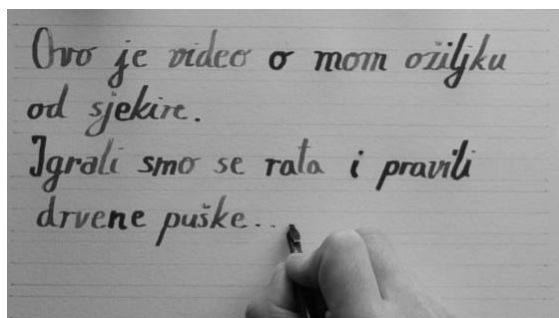 Ovo je video o mom ožiljku
od sjekire.
Igrali smo se rata i pravili
drvene puške...